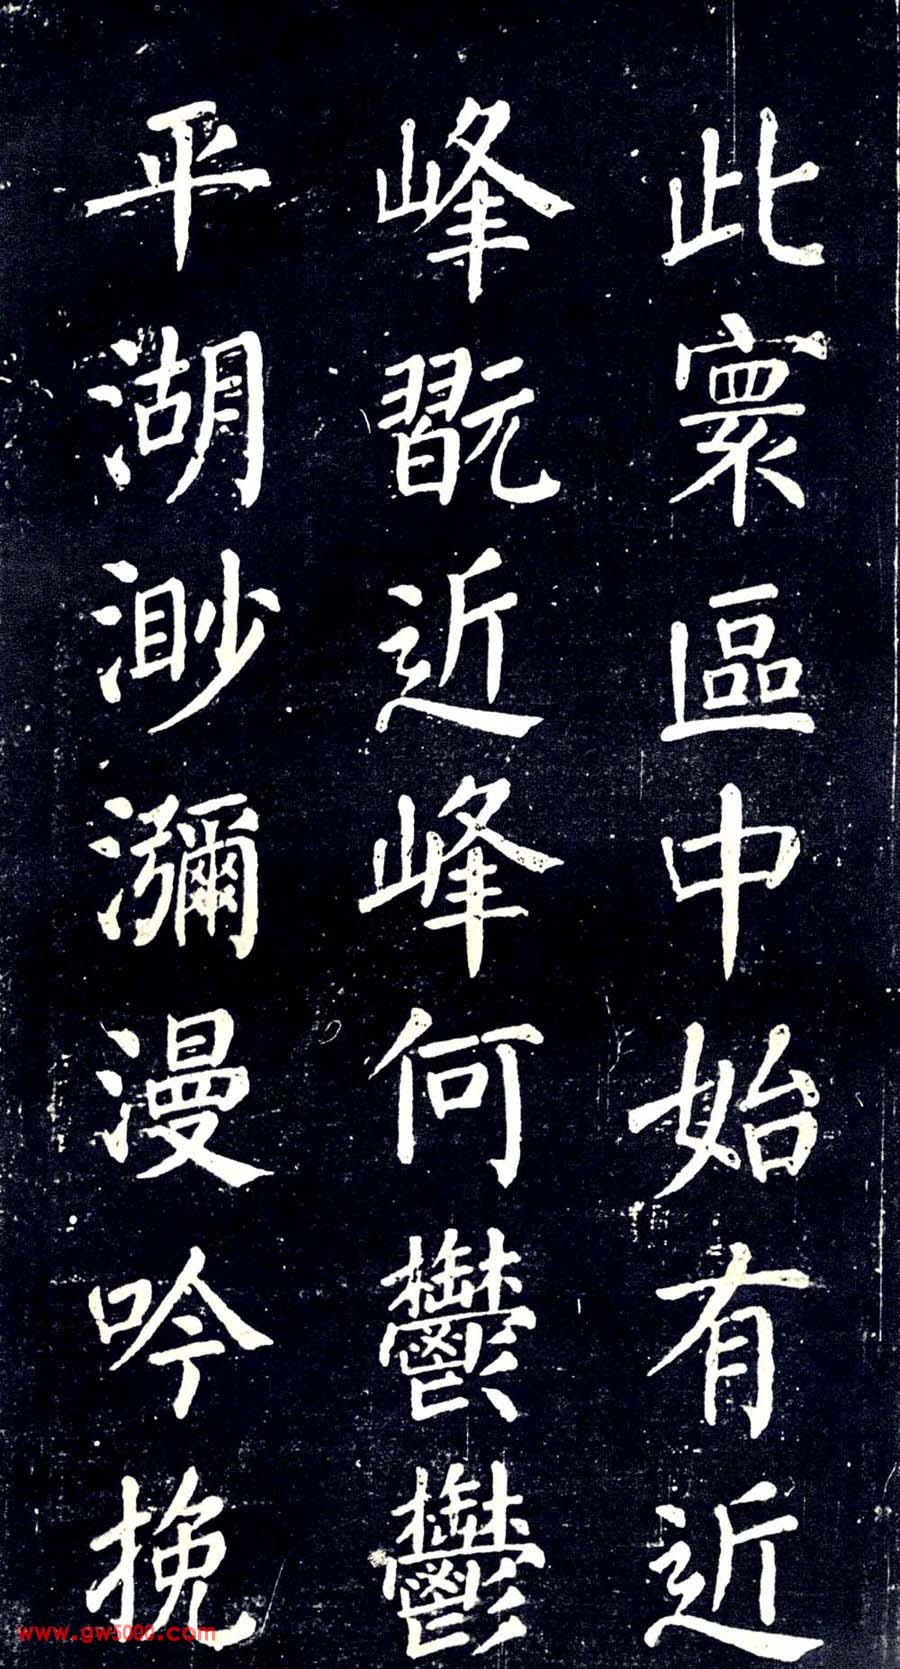 此寰區中始有近
峰翫近峰何鬱鬱
平湖渺瀰漫吟挽
www.gw5000.com